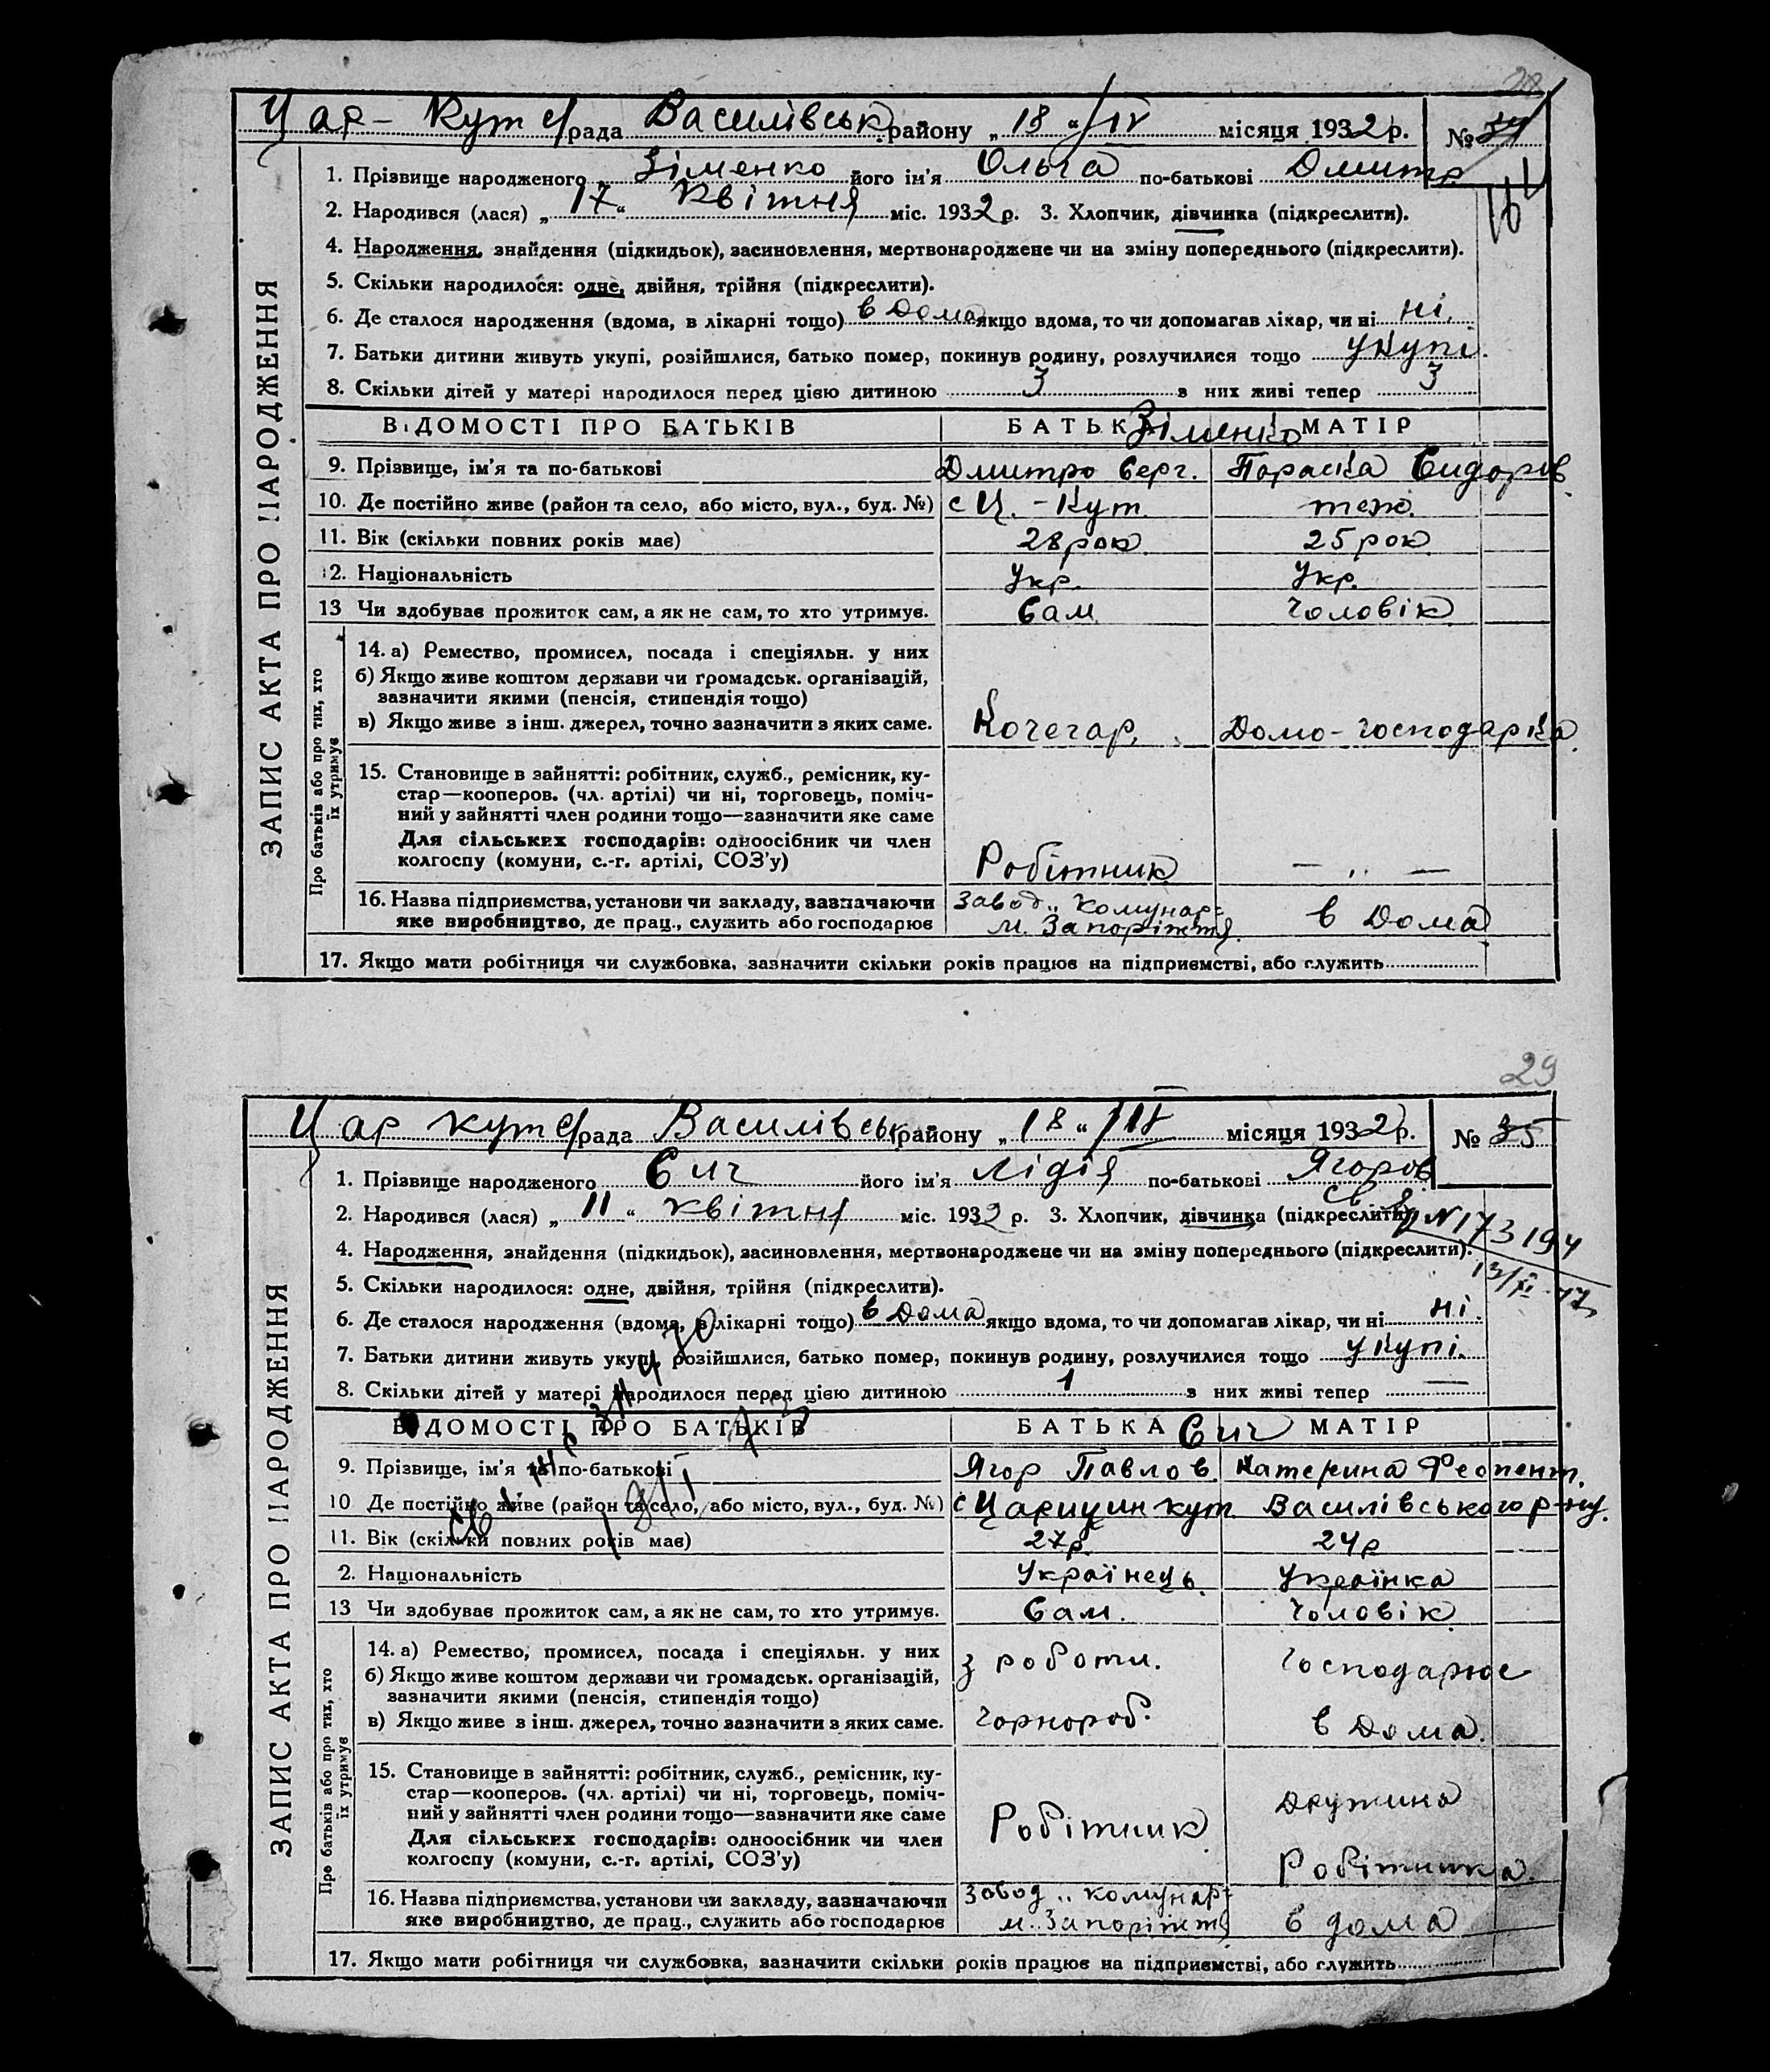 28
Цар-Кут с/рада Василівськ району „18“ /IV місяця 1932 р. № 34
1. Прізвище народженого Зіменко його ім'я Ольга по-батькові Дмитр.
2. Народився (лася) „17“ Квітня міс. 1932 р. 3. Хлопчик, дівчинка (підкреслити).
4. Народження, знайдення (підкидьок), засиновлення, мертвонароджене чи на зміну попереднього (підкреслити).
5. Скільки народилося: одне, двійня, трійня (підкреслити).
6. Де сталося народження (вдома, в лікарні тощо) в Дома якщо вдома, то чи допомагав лікар, чи ні ні.
7. Батьки дитини живуть укупі, розійшлися, батько помер, покинув родину, розлучилися тощо укупі.
8. Скільки дітей у матері народилося перед цією дитиною 3 з них живі тепер 3
ЗАПИС АКТА ПРО НАРОДЖЕННЯ
ВІДОМОСТІ ПРО БАТЬКІВ БАТЬКА Зіменко МАТІР
9. Прізвище, ім'я та по-батькові Дмитро Серг. Параска Сидорів.
10. Де постійно живе (район та село, або місто, вул., буд. №) с Ц.-Кут. теж.
11. Вік (скільки повних років має) 28 рок. 25 рок.
12. Національність Укр. Укр.
13 Чи здобуває прожиток сам, а як не сам, то хто утримує. Сам. Чоловік
Про батьків або про тих, хто їх утримує
14. а) Ремество, промисел, посада і спеціяльн. у них
б) Якщо живе коштом держави чи громадськ. організацій,
зазначити якими (пенсія, стипендія тощо)
в) Якщо живе з інш. джерел, точно зазначити з яких саме. Кочегар. Домо-господарка.
15. Становище в зайнятті: робітник, служб., ремісник, ку-
стар—кооперов. (чл. артілі) чи ні, торговець, поміч-
ний у зайнятті член родини тощо—зазначити яке саме
Для сільських господарів: одноосібник чи член
колгоспу (комуни, с.-г. артілі, СОЗ'у) Робітник — „ —
16. Назва підприємства, установи чи закладу, зазначаючи завод „Комунар“
яке виробництво, де прац., служить або господарює м. Запоріжжя. в Дома
17. Якщо мати робітниця чи службовка, зазначити скільки років працює на підприємстві, або служить
29
Цар Кут с/рада Василівськ району „18“ /IV місяця 1932 р. № 35
1. Прізвище народженого Сич його ім'я Лідія по-батькові Ягоров
2. Народився (лася) „11“ Квітня міс. 1932 р. 3. Хлопчик, дівчинка (підкреслити).
№ 173194
4. Народження, знайдення (підкидьок), засиновлення, мертвонароджене чи на зміну попереднього (підкреслити).
5. Скільки народилося: одне, двійня, трійня (підкреслити).
6. Де сталося народження (вдома, в лікарні тощо) в Дома якщо вдома, то чи допомагав лікар, чи ні ні.
7. Батьки дитини живуть укупі, розійшлися, батько помер, покинув родину, розлучилися тощо укупі.
8. Скільки дітей у матері народилося перед цією дитиною 1 з них живі тепер —
ЗАПИС АКТА ПРО НАРОДЖЕННЯ
ВІДОМОСТІ ПРО БАТЬКІВ БАТЬКА Сич МАТІР
9. Прізвище, ім'я та по-батькові Ягор Павлов. Катерина Феопент.
10 Де постійно живе (район та село, або місто, вул., буд. №) с Царицин кут Василівського р-ну.
11. Вік (скільки повних років має) 27р. 24р
2. Національність Українець. Українка
13 Чи здобуває прожиток сам, а як не сам, то хто утримує. Сам. Чоловік
Про батьків або про тих, хто їх утримує
14. а) Ремество, промисел, посада і спеціяльн. у них з роботи. Господарює
б) Якщо живе коштом держави чи громадськ. організацій,
зазначити якими (пенсія, стипендія тощо)
в) Якщо живе з інш. джерел, точно зазначити з яких саме. Чорнороб. в Дома.
15. Становище в зайнятті: робітник, служб., ремісник, ку-
стар—кооперов. (чл. артілі) чи ні, торговець, поміч- Дружина
ний у зайнятті член родини тощо—зазначити яке саме Робітник
Для сільських господарів: одноосібник чи член
колгоспу (комуни, с.-г. артілі, СОЗ'у) Робітника.
16. Назва підприємства, установи чи закладу, зазначаючи завод „Комунар“
яке виробництво, де прац., служить або господарює м. Запоріжжя в дома
17. Якщо мати робітниця чи службовка, зазначити скільки років працює на підприємстві, або служить